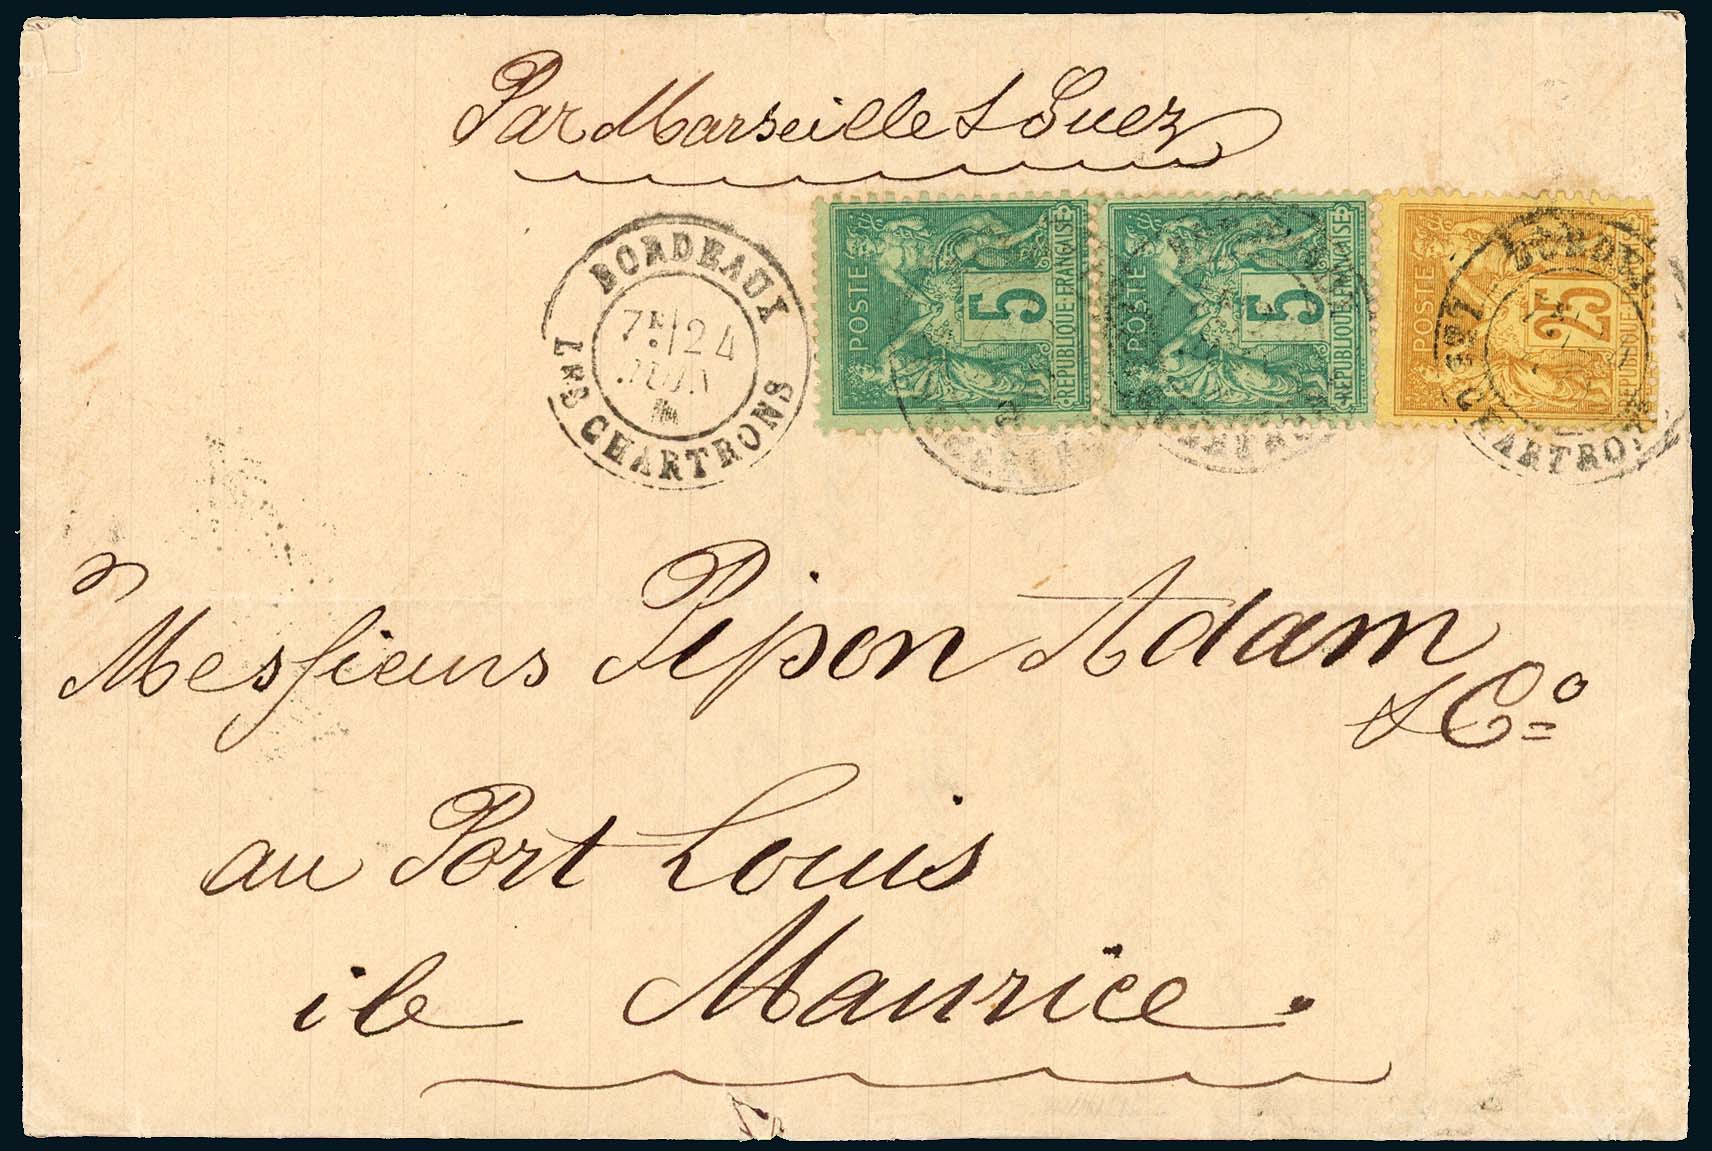 Par Marseille & Suez
BORDEAUX
7E 24
JUIN
LES CHARTRONS
POSTE
5
REPUBLIQUE FRANÇAISE
POSTE
5
REPUBLIQUE FRANÇAISE
POSTE
25
REPUBLIQUE
Messieurs Pipon Adam
& Co
au Port Louis
ile Maurice.